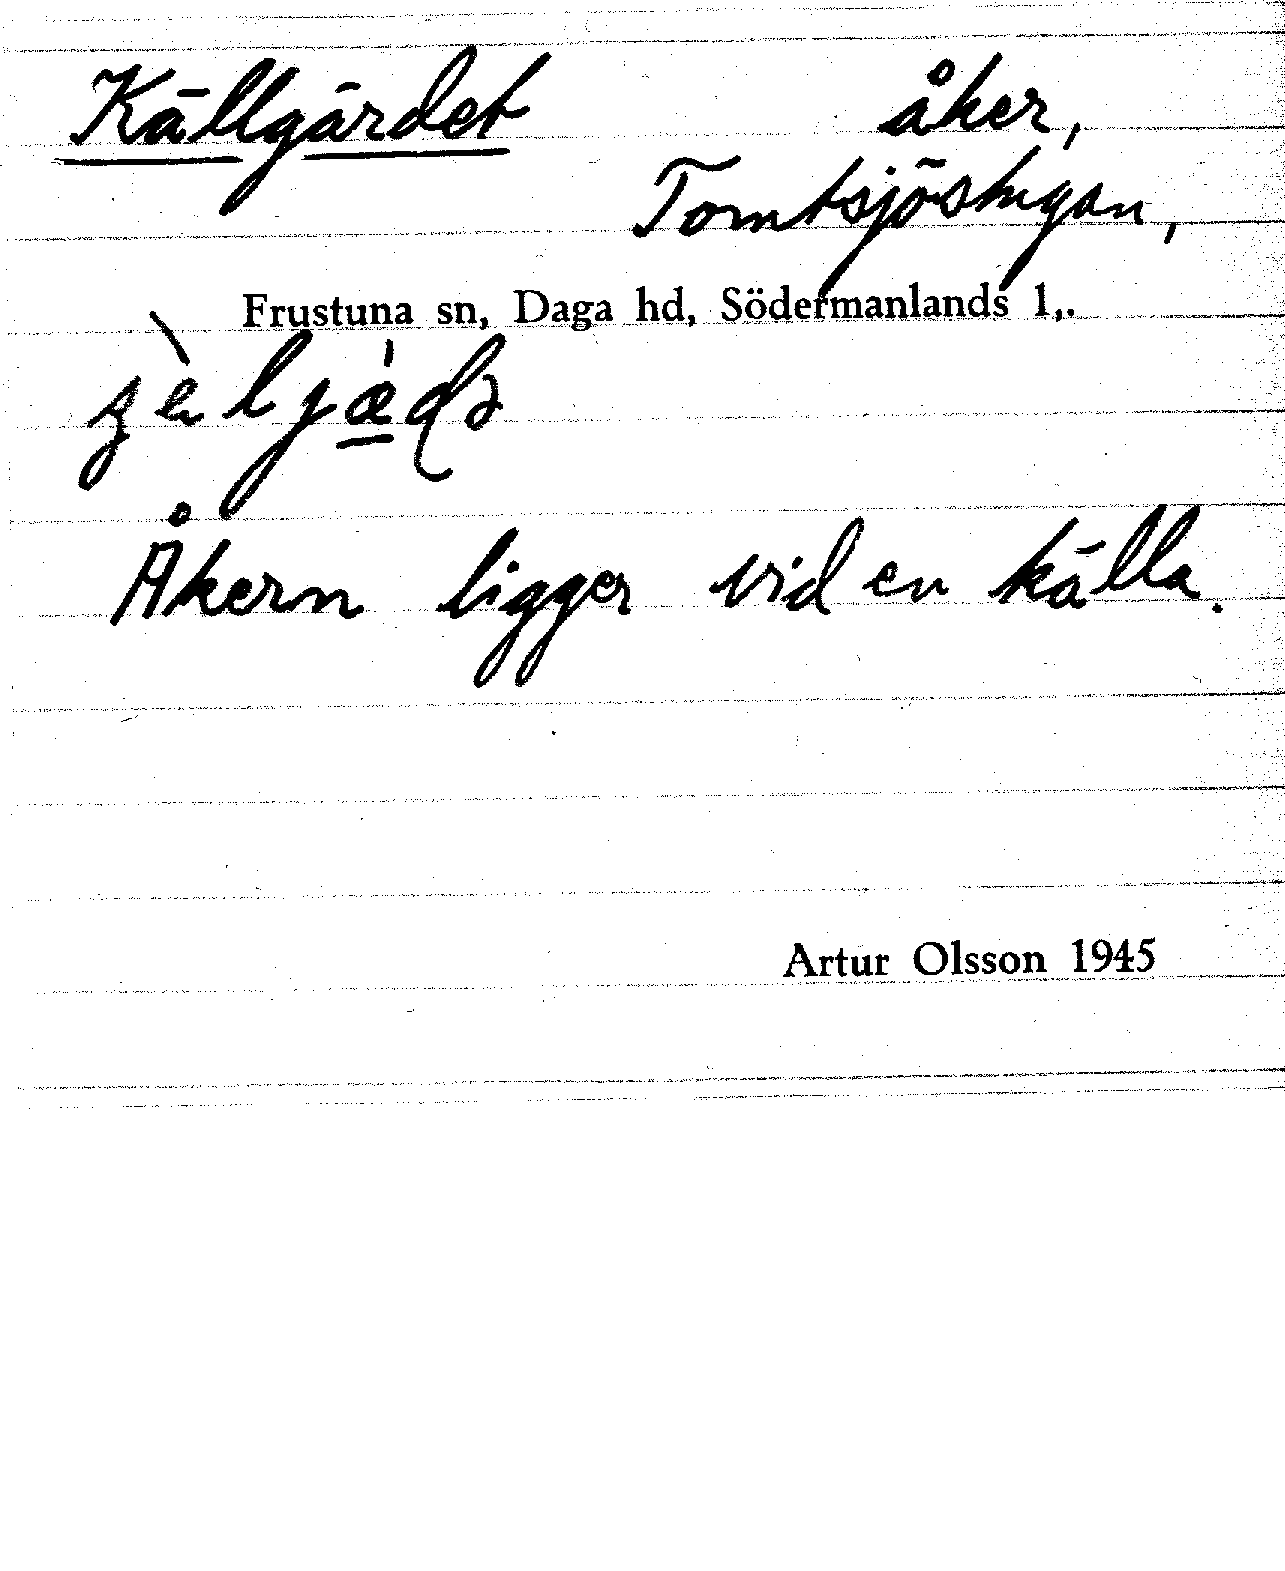 Källgärdet åker,
Tomtsjöstugan,
Frustuna sn, Daga hd, Södermanlands l,.
Åkern ligger vid en källa.
Artur Olsson 1945